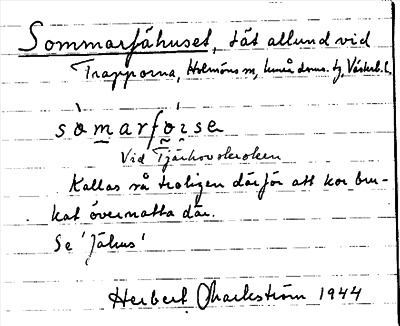 Sommarfähuset, tät allund vid
Trapporna, Holmöns sn, Umeå doms. tg, Västerb. l.
sòmarfǿise
Vid Tjärhovskroken
Kallas så troligen därför att kor bru-
kat övernatta där.
Se 'fähus'
Herbert Markström 1944